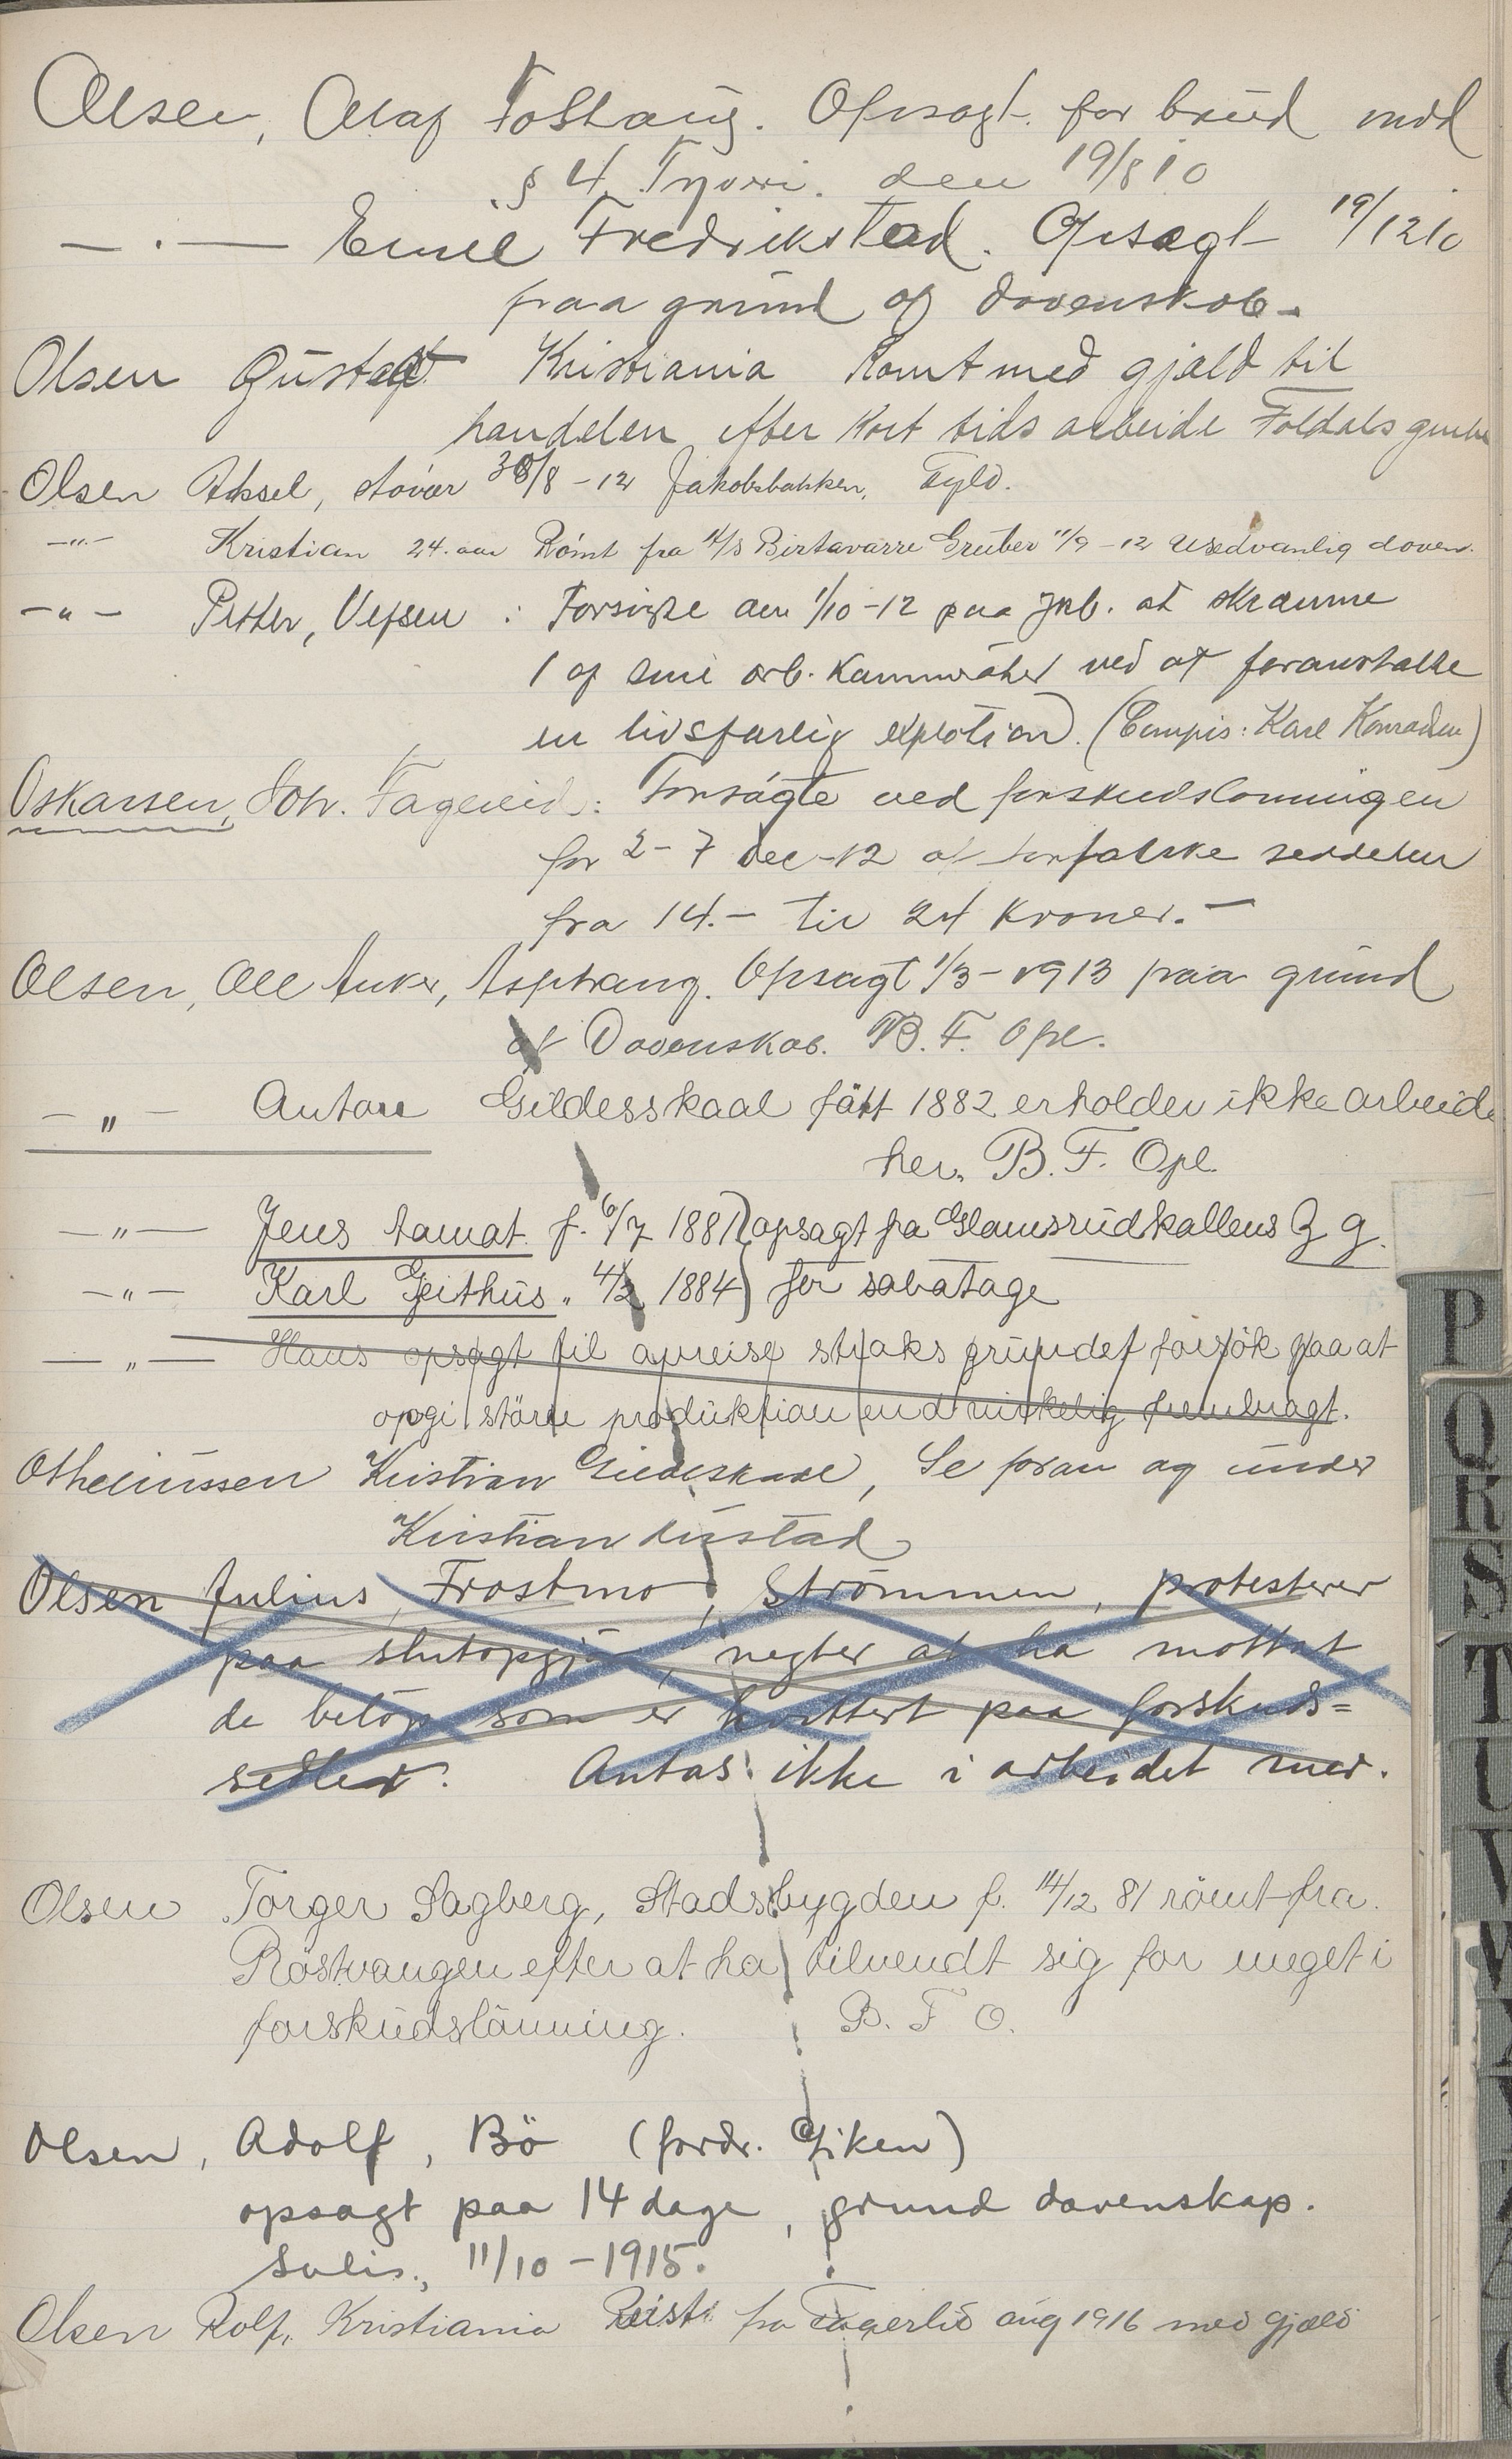 Olsen, Olaf Toshaug. Opsagt for brud mod
§ 4 Tyveri. den 19/8 10
— · — Emil Fredrikstad. Opsagt 19/12 10
paa grund af dovenskab.
Olsen Gustaf Kristiania Rømt med gjæld til
handelen efter kort tids arbeide Foldals grube
Olsen Aksel, støver 30/8 - 12 Jakobsbakken. Fyld.
—"— Kristian 24. aar Rømt fra A/S Birtavarre Gruber 11/9 - 12 Usedvanlig doven.
—"— Petter, Vefsen : Forsøgte den 1/10 - 12 paa Jkb. at skræmme
1 af sine arb. kammerater ved at foranstalte
en livsfarlig explotion. (Compis: Karl Konradsen)
Oskarsen, Joh. Fagereid: Forsøgte ved forskudslønningen
for 2 - 7 dec - 12 at forfalske seddelen
fra 14.- til 24 kroner. -
Olsen, Ole Anker, Asphaug. Opsagt 1/3 - 1913 paa grund
af Dovenskab. B. F. Opl.
—"— Antone Gildesskaal født 1882 erholder ikke arbeide
her. B. F. Opl.
—"— Jens Aamat f. 6/7 1881) opsagt fra Glamsrudkollens Z g.
—"— Karl Geithus „ 4/2 1884) for sabatage
—"— Hans opsagt til avreise straks grundet forsök paa at
opgi större produktion end virkelig frembragt.
Otheliussen Kristian Gildeskaal, Se foran og under
Kristian Austad
Olsen Julius, Frostmo, Strömmen, protesterer
paa slutopgjör, negter at ha mottat
de belöp som er kvittert paa forskuds=
sedler. Antas ikke i arbeidet mer.
Olsen Torger Sagberg, Stadsbygden f. 14/12 81 römt fra
Röstvangen efter at ha tilvendt sig for meget i
forskudslönning. B. F O.
Olsen, Adolf, Bö (fordr. Giken)
opsagt paa 14 dage, grund dovenskap.
Sulis., 11/10 - 1915.
Olsen Rolf, Kristiania Reist fra Fagerlid aug 1916 med gjæld
P
Q
R
S
T
U
V
W